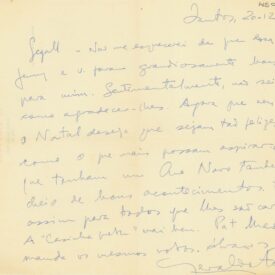 Santos, 20.12
Segall - Não me esquecerei de que
Jenny e v. foram grandiosamente bons
para mim. Sentimentalmente, não sei
como agradecer-lhes. Agora que vem
o Natal desejo que sejam tão felizes
como o que mais possam aspirar
que tenham um Ano Novo também
cheio de bons acontecimentos.
assim para todos que lhes são
A "Casinha vai bem. Pat
manda os mesmos votos. Abraços
Geraldo